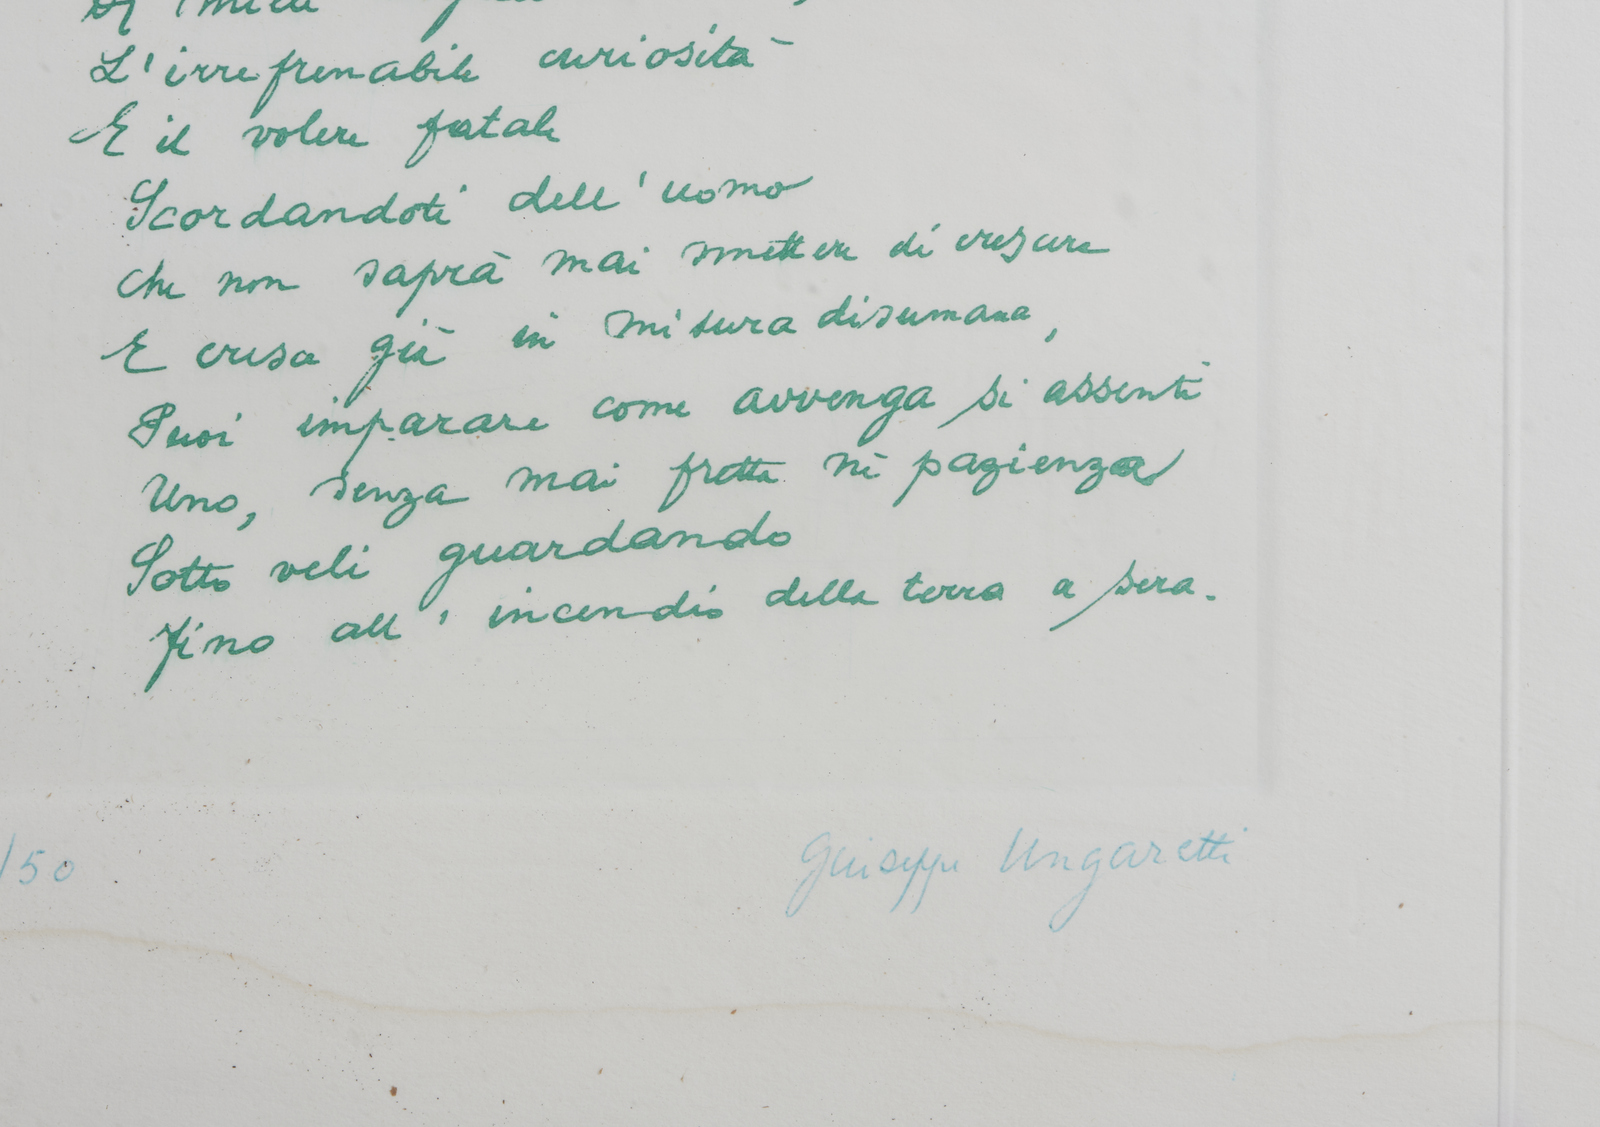 Di mille
L'irrefrenabile curiosità
E il volere fatale
Scordandoti dell'uomo
Che non saprà mai smettere di crescere
E cresce già in misura disumana,
Puoi imparare come avvenga si assenti
Uno, senza mai fretta nè pazienza
Sotto veli guardando
Fino all'incendio della terra a sera.
/50
Giuseppe Ungaretti